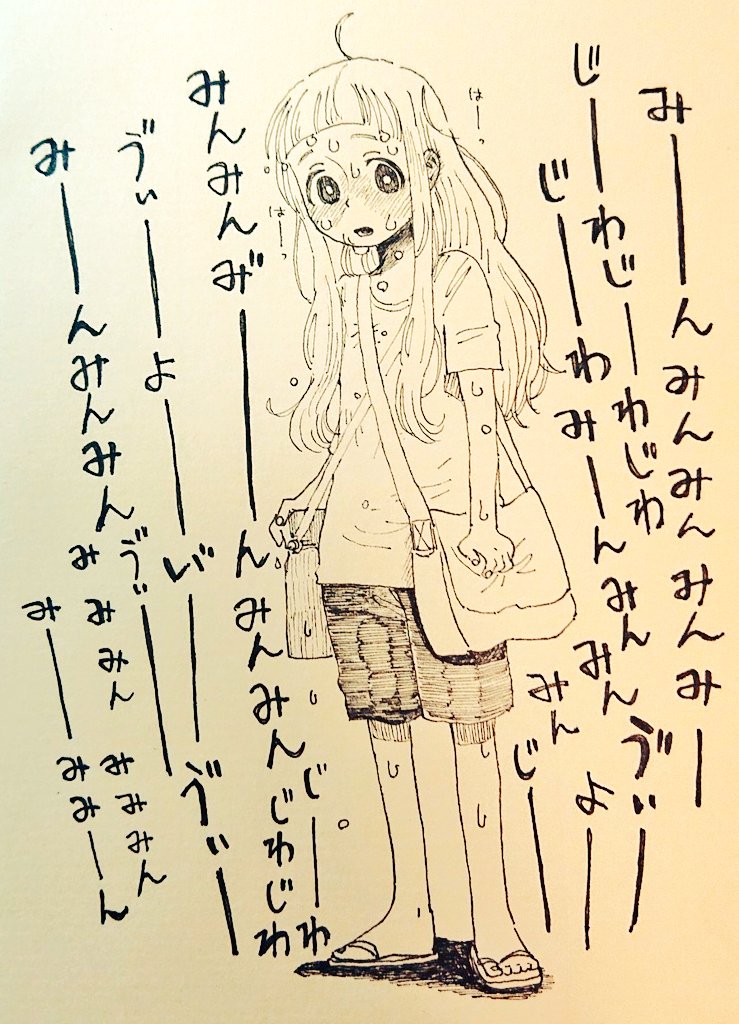 みーーんみんみんみんみー
じーわじーわじわ
ゔぃー
じーわみーんみんみん
よー
みん
じー
はーっ
はーっ
じーわ
みんみんみ゛ーんみんみんじわじわ
ゔぃーよーい゛ーゔぃー
ゔぃー
みーんみんみんみみみん
みみみん
みーみみーん